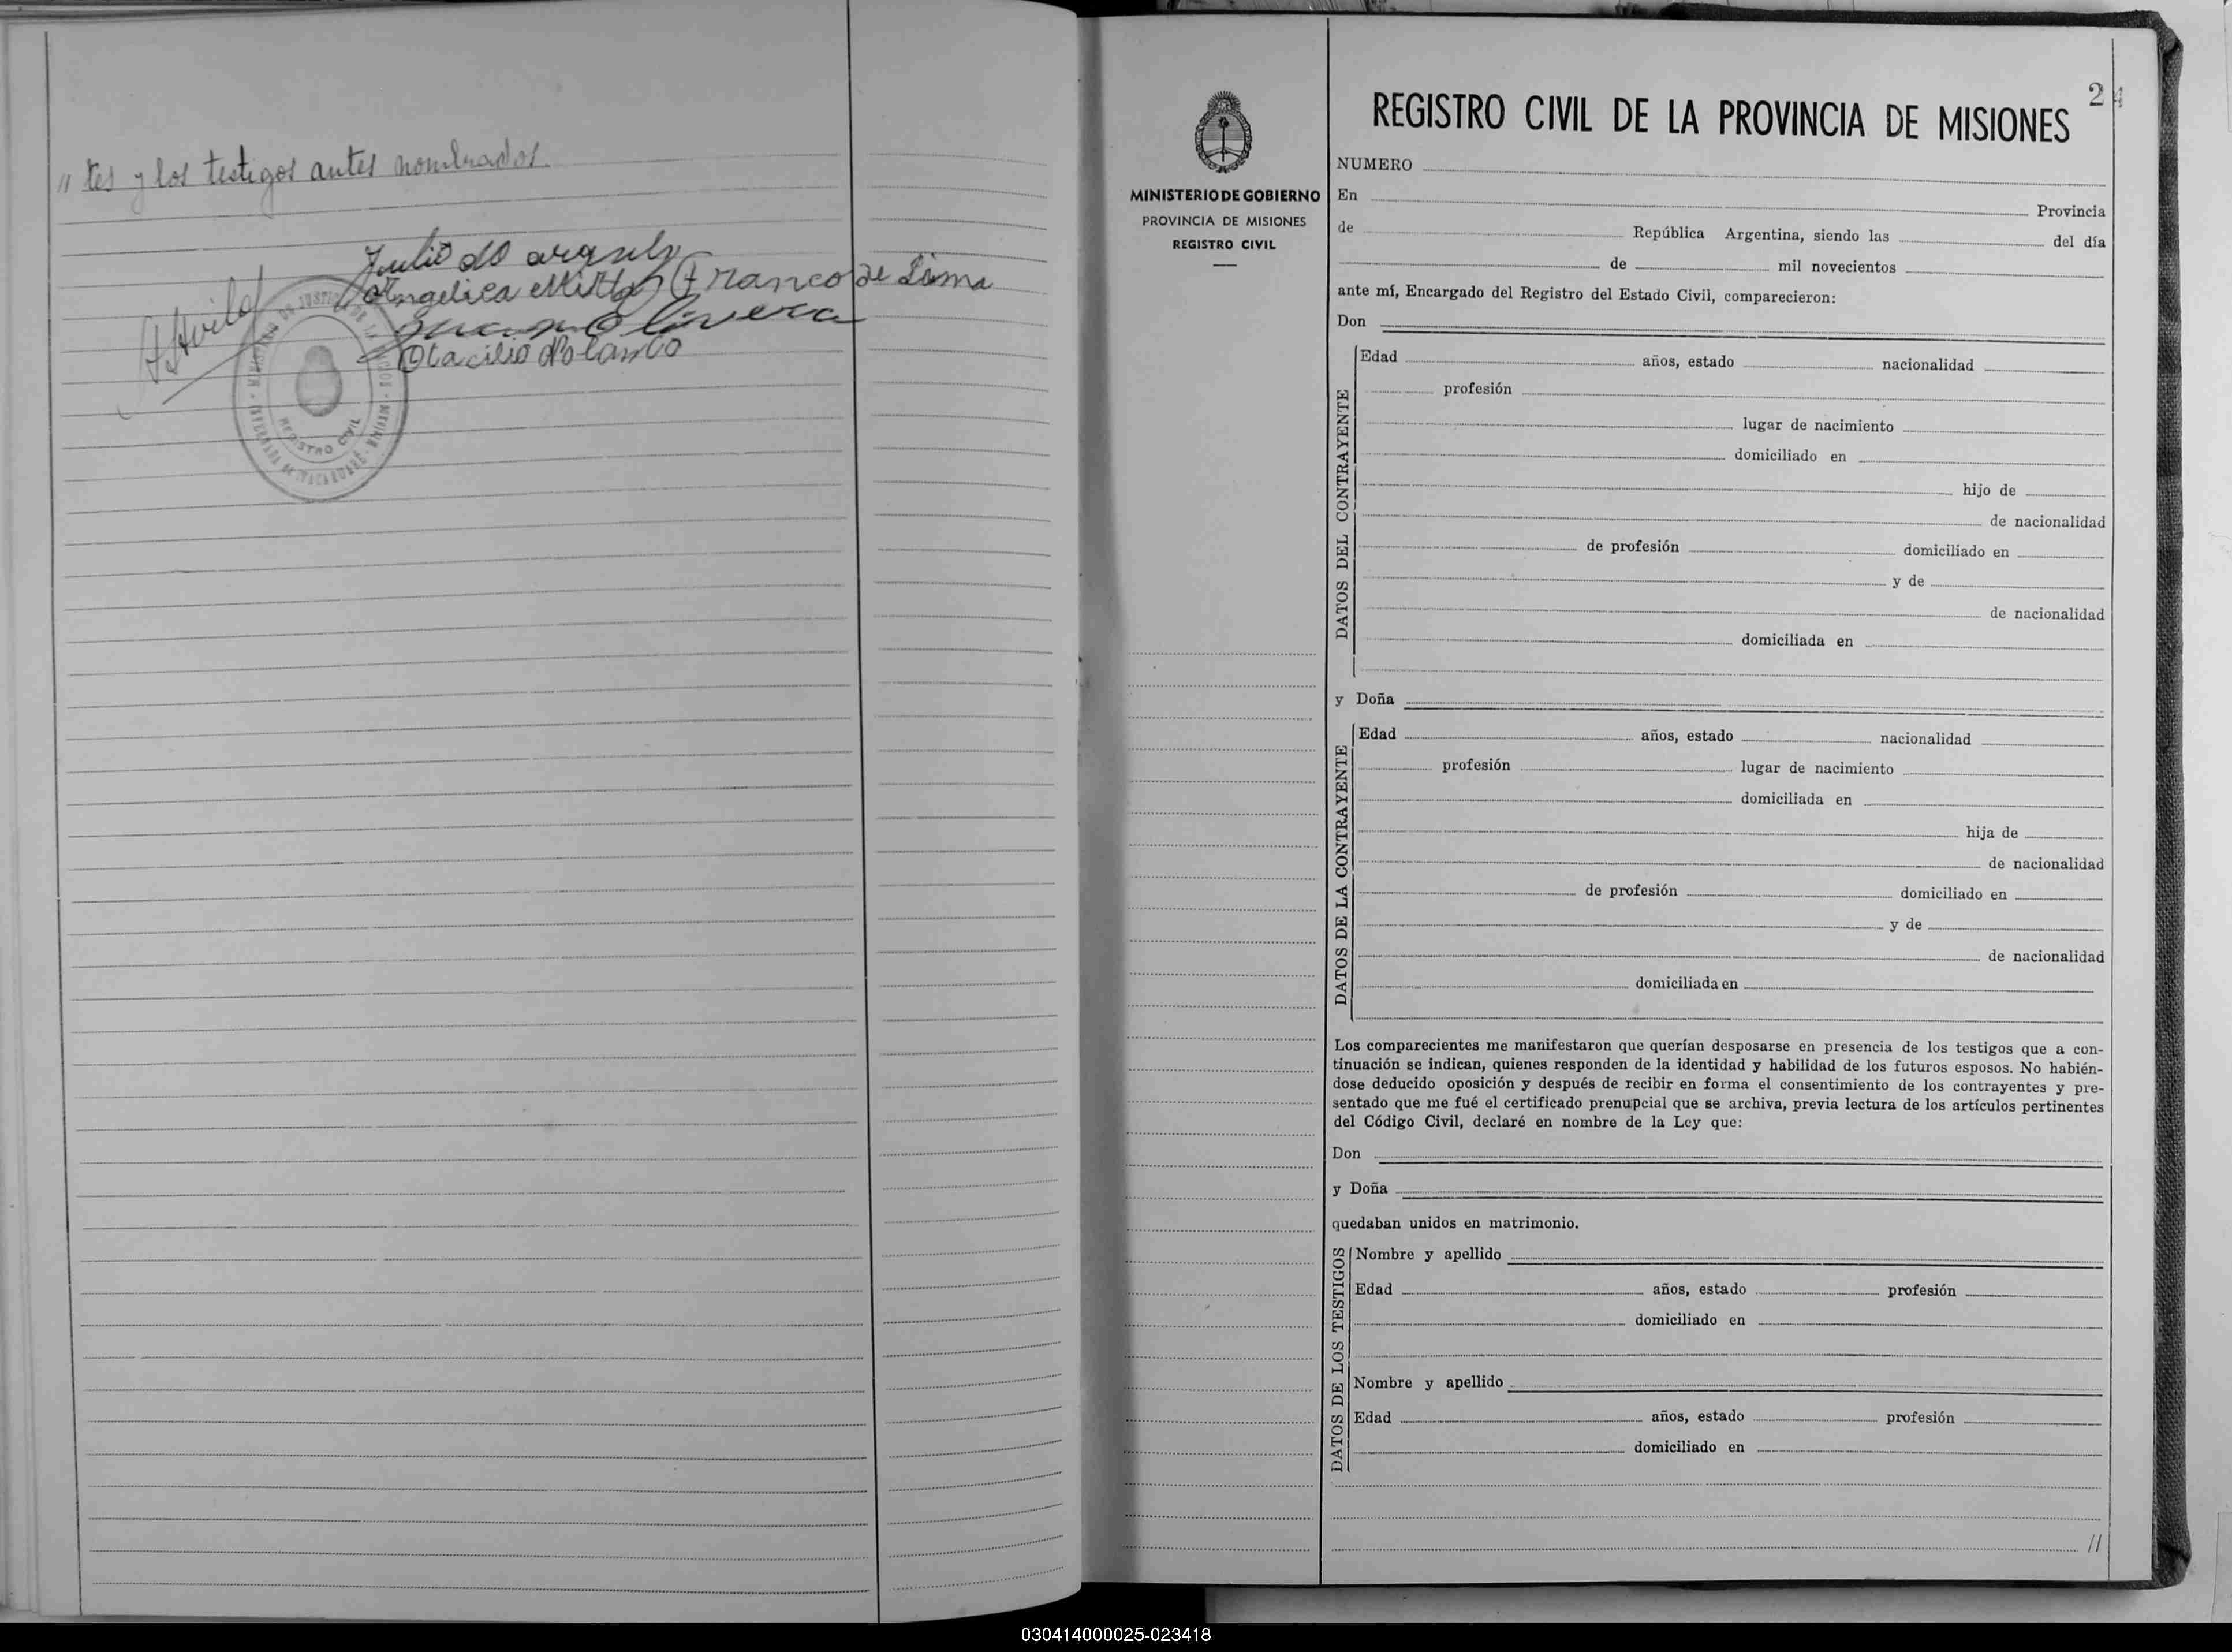 " tes y los testigos antes nombrados.
Julio
Angelica Mirta Franco de Lima
Juan Olivera
Otacilio Polanco
AAvila
REGISTRO CIVIL
24
REGISTRO CIVIL DE LA PROVINCIA DE MISIONES
MINISTERIO DE GOBIERNO
PROVINCIA DE MISIONES
REGISTRO CIVIL
NUMERO
En Provincia
de República Argentina, siendo las del día
de mil novecientos
ante mí, Encargado del Registro del Estado Civil, comparecieron:
Don
DATOS DEL CONTRAYENTE
Edad años, estado nacionalidad
profesión
lugar de nacimiento
domiciliado en
hijo de
de nacionalidad
de profesión domiciliado en
y de
de nacionalidad
domiciliada en
y Doña
DATOS DE LA CONTRAYENTE
Edad años, estado nacionalidad
profesión lugar de nacimiento
domiciliada en
hija de
de nacionalidad
de profesión domiciliado en
y de
de nacionalidad
domiciliada en
Los comparecientes me manifestaron que querían desposarse en presencia de los testigos que a con-
tinuación se indican, quienes responden de la identidad y habilidad de los futuros esposos. No habién-
dose deducido oposición y después de recibir en forma el consentimiento de los contrayentes y pre-
sentado que me fué el certificado prenupcial que se archiva, previa lectura de los artículos pertinentes
del Código Civil, declaré en nombre de la Ley que:
Don
y Doña
quedaban unidos en matrimonio.
DATOS DE LOS TESTIGOS
Nombre y apellido
Edad años, estado profesión
domiciliado en
Nombre y apellido
Edad años, estado profesión
domiciliado en
//
030414000025-023418